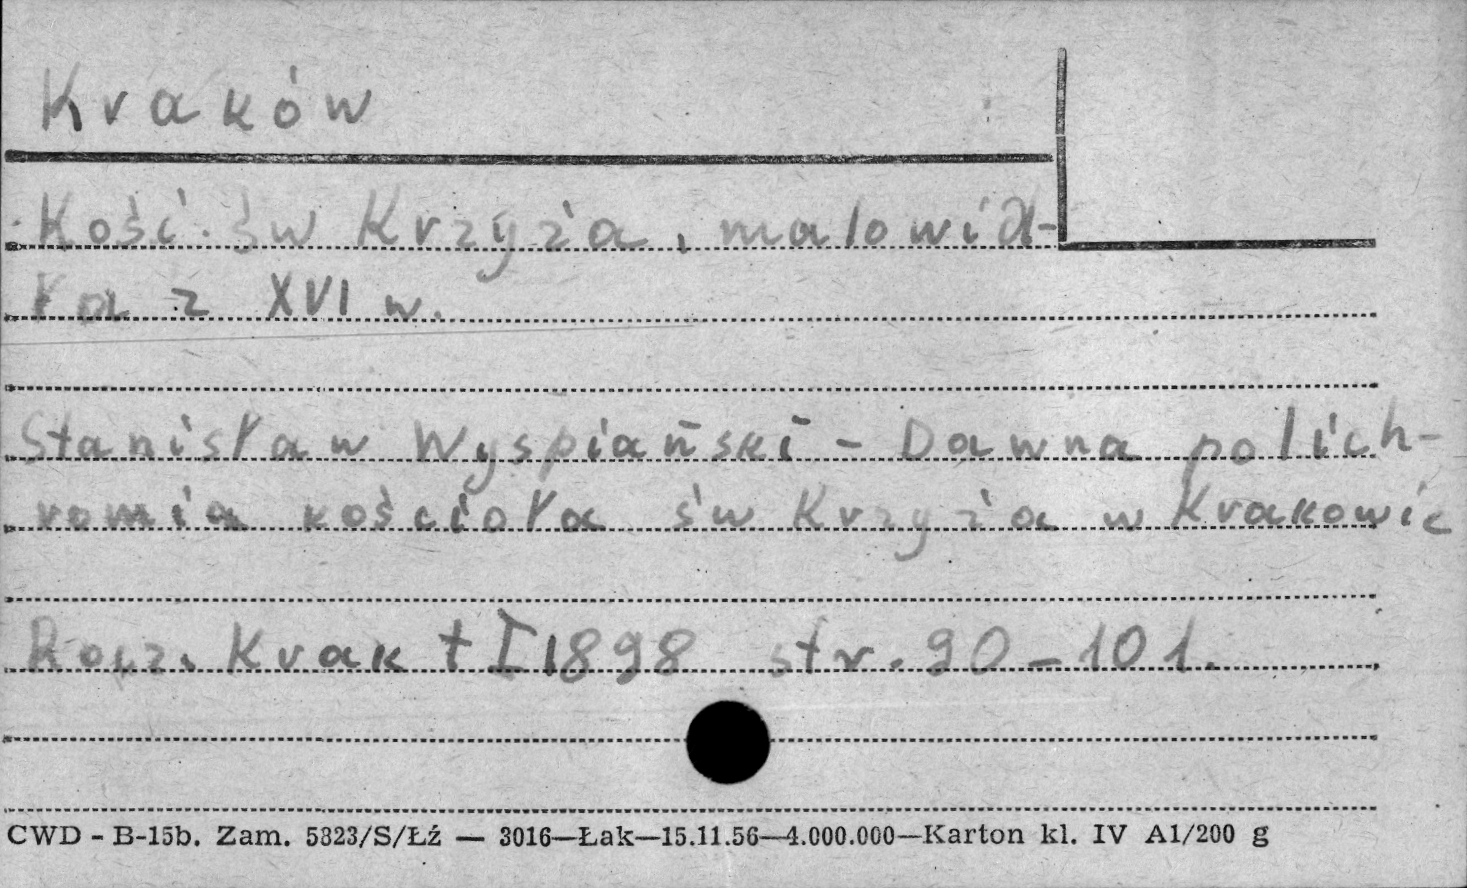 Kraków
Kość. św Krzyża, malowid-
ła z XVI w.
Stanisław Wyspiański - Dawna polich-
romia kościoła św Krzyża w Krakowie
Rocz. Krak t I 1898 str. 90-101.
CWD - B-15b. Zam. 5823/S/Łź — 3016—Łak—15.11.56—4.000.000—Karton kl. IV A1/200 g